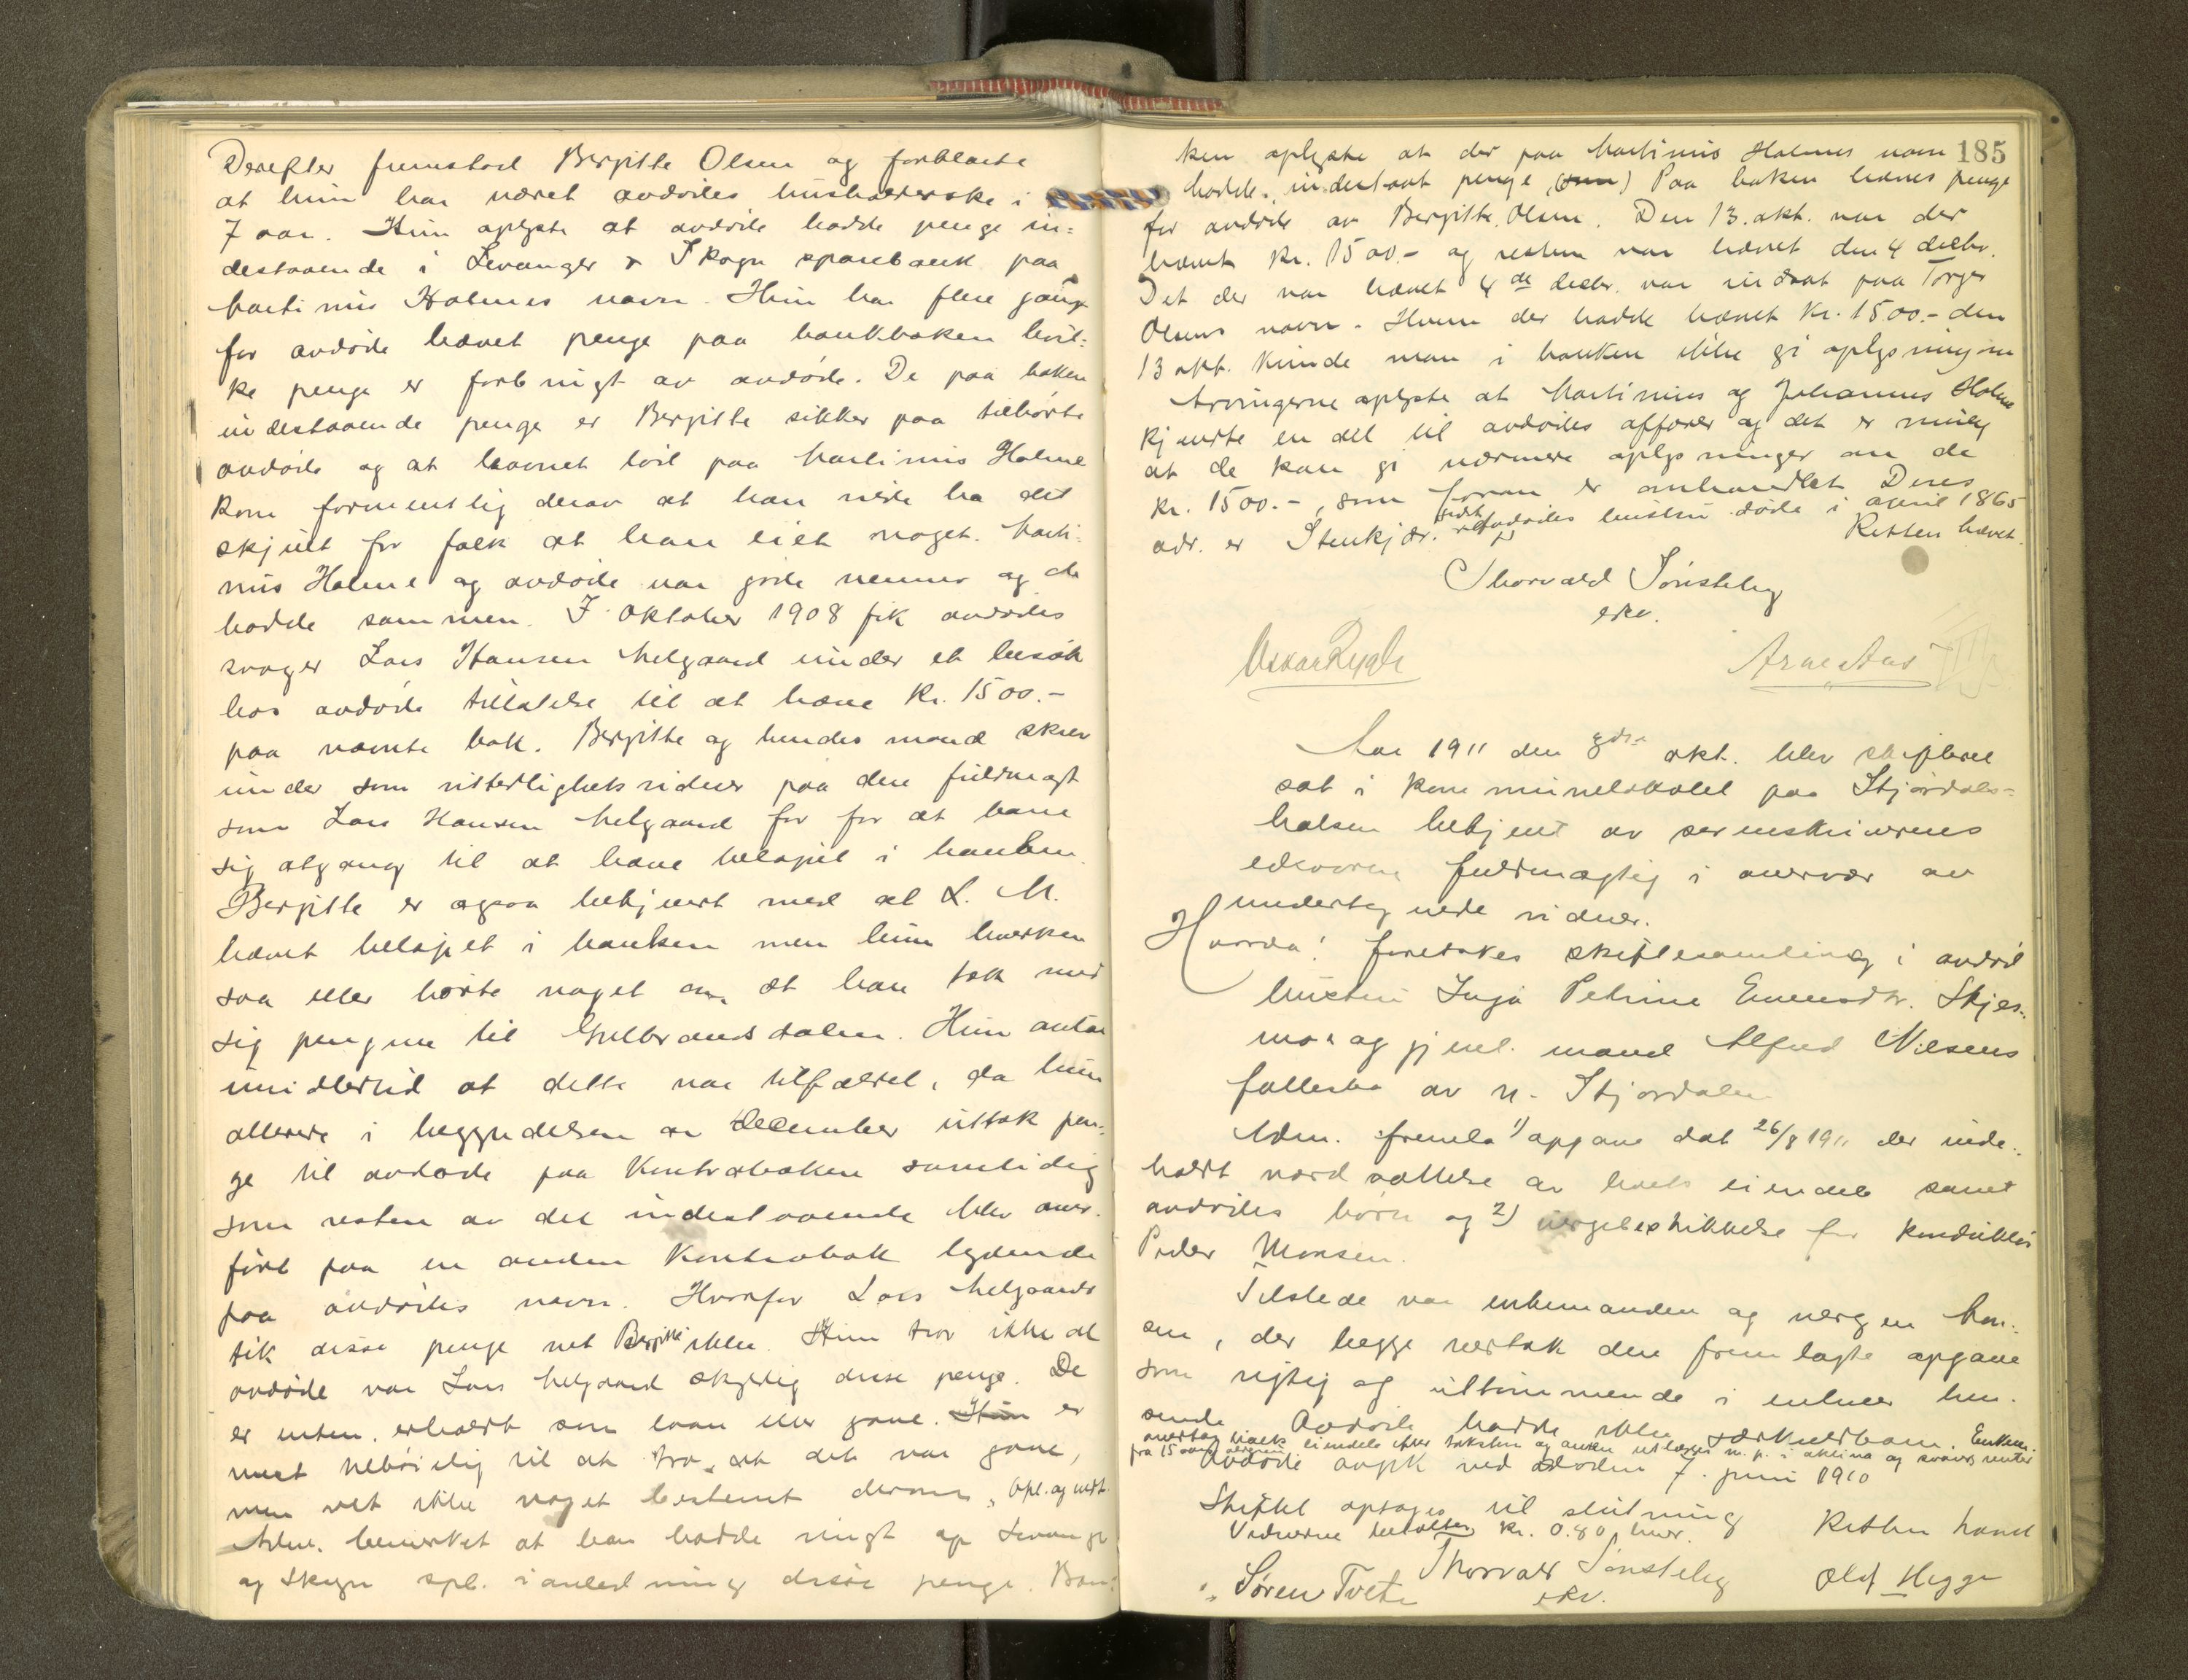 Derefter fremstod Bergitte Olsen og forklarte
at hun har været avdødes husholderske i
7 aar. Hun oplyste at avdøde hadde penge in=
destaaende i Levanger & Skogn sparebank paa
Martinus Holmes navn. Hun har flere gange
for avdøde hævet penge paa bankboken hvil=
ke penge er forbrugt av avdøde. De paa boken
indestaaende penge er Bergitte sikker paa tilhørte
avdøde og at navnet lød paa Martinus Holme
kom formentlig derav at han vilde ha det
skjult for folk at han eiet noget. Marti=
nus Holme og avdøde var gode venner og de
bodde sammen. I oktober 1908 fik avdødes
svoger Lars Hansen Melgaard under et besøk
hos avdøde tilladelse til at hæve kr. 1500.-
paa nævnte bok. Bergitte og hendes mand skrev
under som vitterlighetsvidner paa den fuldmagt
som Lars Hansen Melgaard fik for at bane
sig adgang til at hæve beløpet i banken.
Bergitte er ogsaa bekjendt med at L. M.
hævet beløpet i banken men hun hverken
saa eller hørte noget om at han tok med
sig pengene til Gulbrandsdalen. Hun antar
imidlertid at dette var tilfældet, da hun
allerede i begyndelsen av december uttok pen=
ge til avdøde paa kontraboken samtidig
som resten av det indestaaende blev over=
ført paa en anden kontrabok lydende
paa avdødes navn. Hvorfor Lars Melgaard
fik disse penge vet Bergitte ikke. Hun tror ikke at
avdøde var Lars Melgaard skyldig disse penge. De
er enten erholdt som laan eller gave. Hun er
mest tilbøielig til at tro at det var gave,
men vet ikke noget bestemt derom. Opl. og vedt.
Adm. bemerket at han hadde ringt op Levanger
og Skogn spb. i anledning disse penge. Ban=
185
ken oplyste at der paa Martinus Holmes navn
hadde indestaat penge (om) Paa boken hævet penge
for avdøde av Bergitte Olsen. Den 13. okt. var der
hævet kr. 1500.- og resten var hævet den 4 decbr.
Det der var hævet 4de decbr. var indsat paa Torger
Olsens navn. Hvem der hadde hævet kr. 1500.- den
13 okt. kunde man i banken ikke gi oplysning om
Arvingerne oplyste at Martinus og Johannes Holme
kjendte en del til avdødes affærer og det er mulig
at de kan gi nærmere oplysninger om de
kr. 1500.-, som foran er omhandlet. Deres
adr. er Stenkjær. avdødes hustru døde i april 1865
Retten hævet.
Thorvald Sønsteby
edsv.
Oskar Rygh
Arne Aas
Aar 1911 den 3die okt. blev skifteret
sat i kommunelokalet paa Stjørdals=
halsen betjent av sorenskriverens
edsvorne fuldmægtig i overvær av
undertegnede vidner.
Hvorda! foretokes skiftesamling i avdød
hustru Inga Petrine Evensdtr. Skjes=
mo's og gjenl. mand Alfred Nilsens
fællesbo av n. Stjørdalen
Adm. fremla 1) opgave dat 26/8 1911 der inde=
holdt værdsættelse av boets eiendele samt
avdødes børn og 2) vergebeskikkelse for konduktør
Peder Monsen.
Tilstede var enkemanden og vergen Mon=
sen, der begge vedtok den fremlagte opgave
som rigtig og uttømmende i enhver hen=
seende. Avdøde hadde ikke særkuldbarn. Enkem.
overtog boets eiendele efter taksten og
Avdøde avgik ved døden 7. juni 1910
Skiftet optages til slutning
Vidnerne betaltes kr. 0.80 hver.
Retten hævet
Thorvald Sønsteby
edsv.
Søren Tvete
Olof Hegge